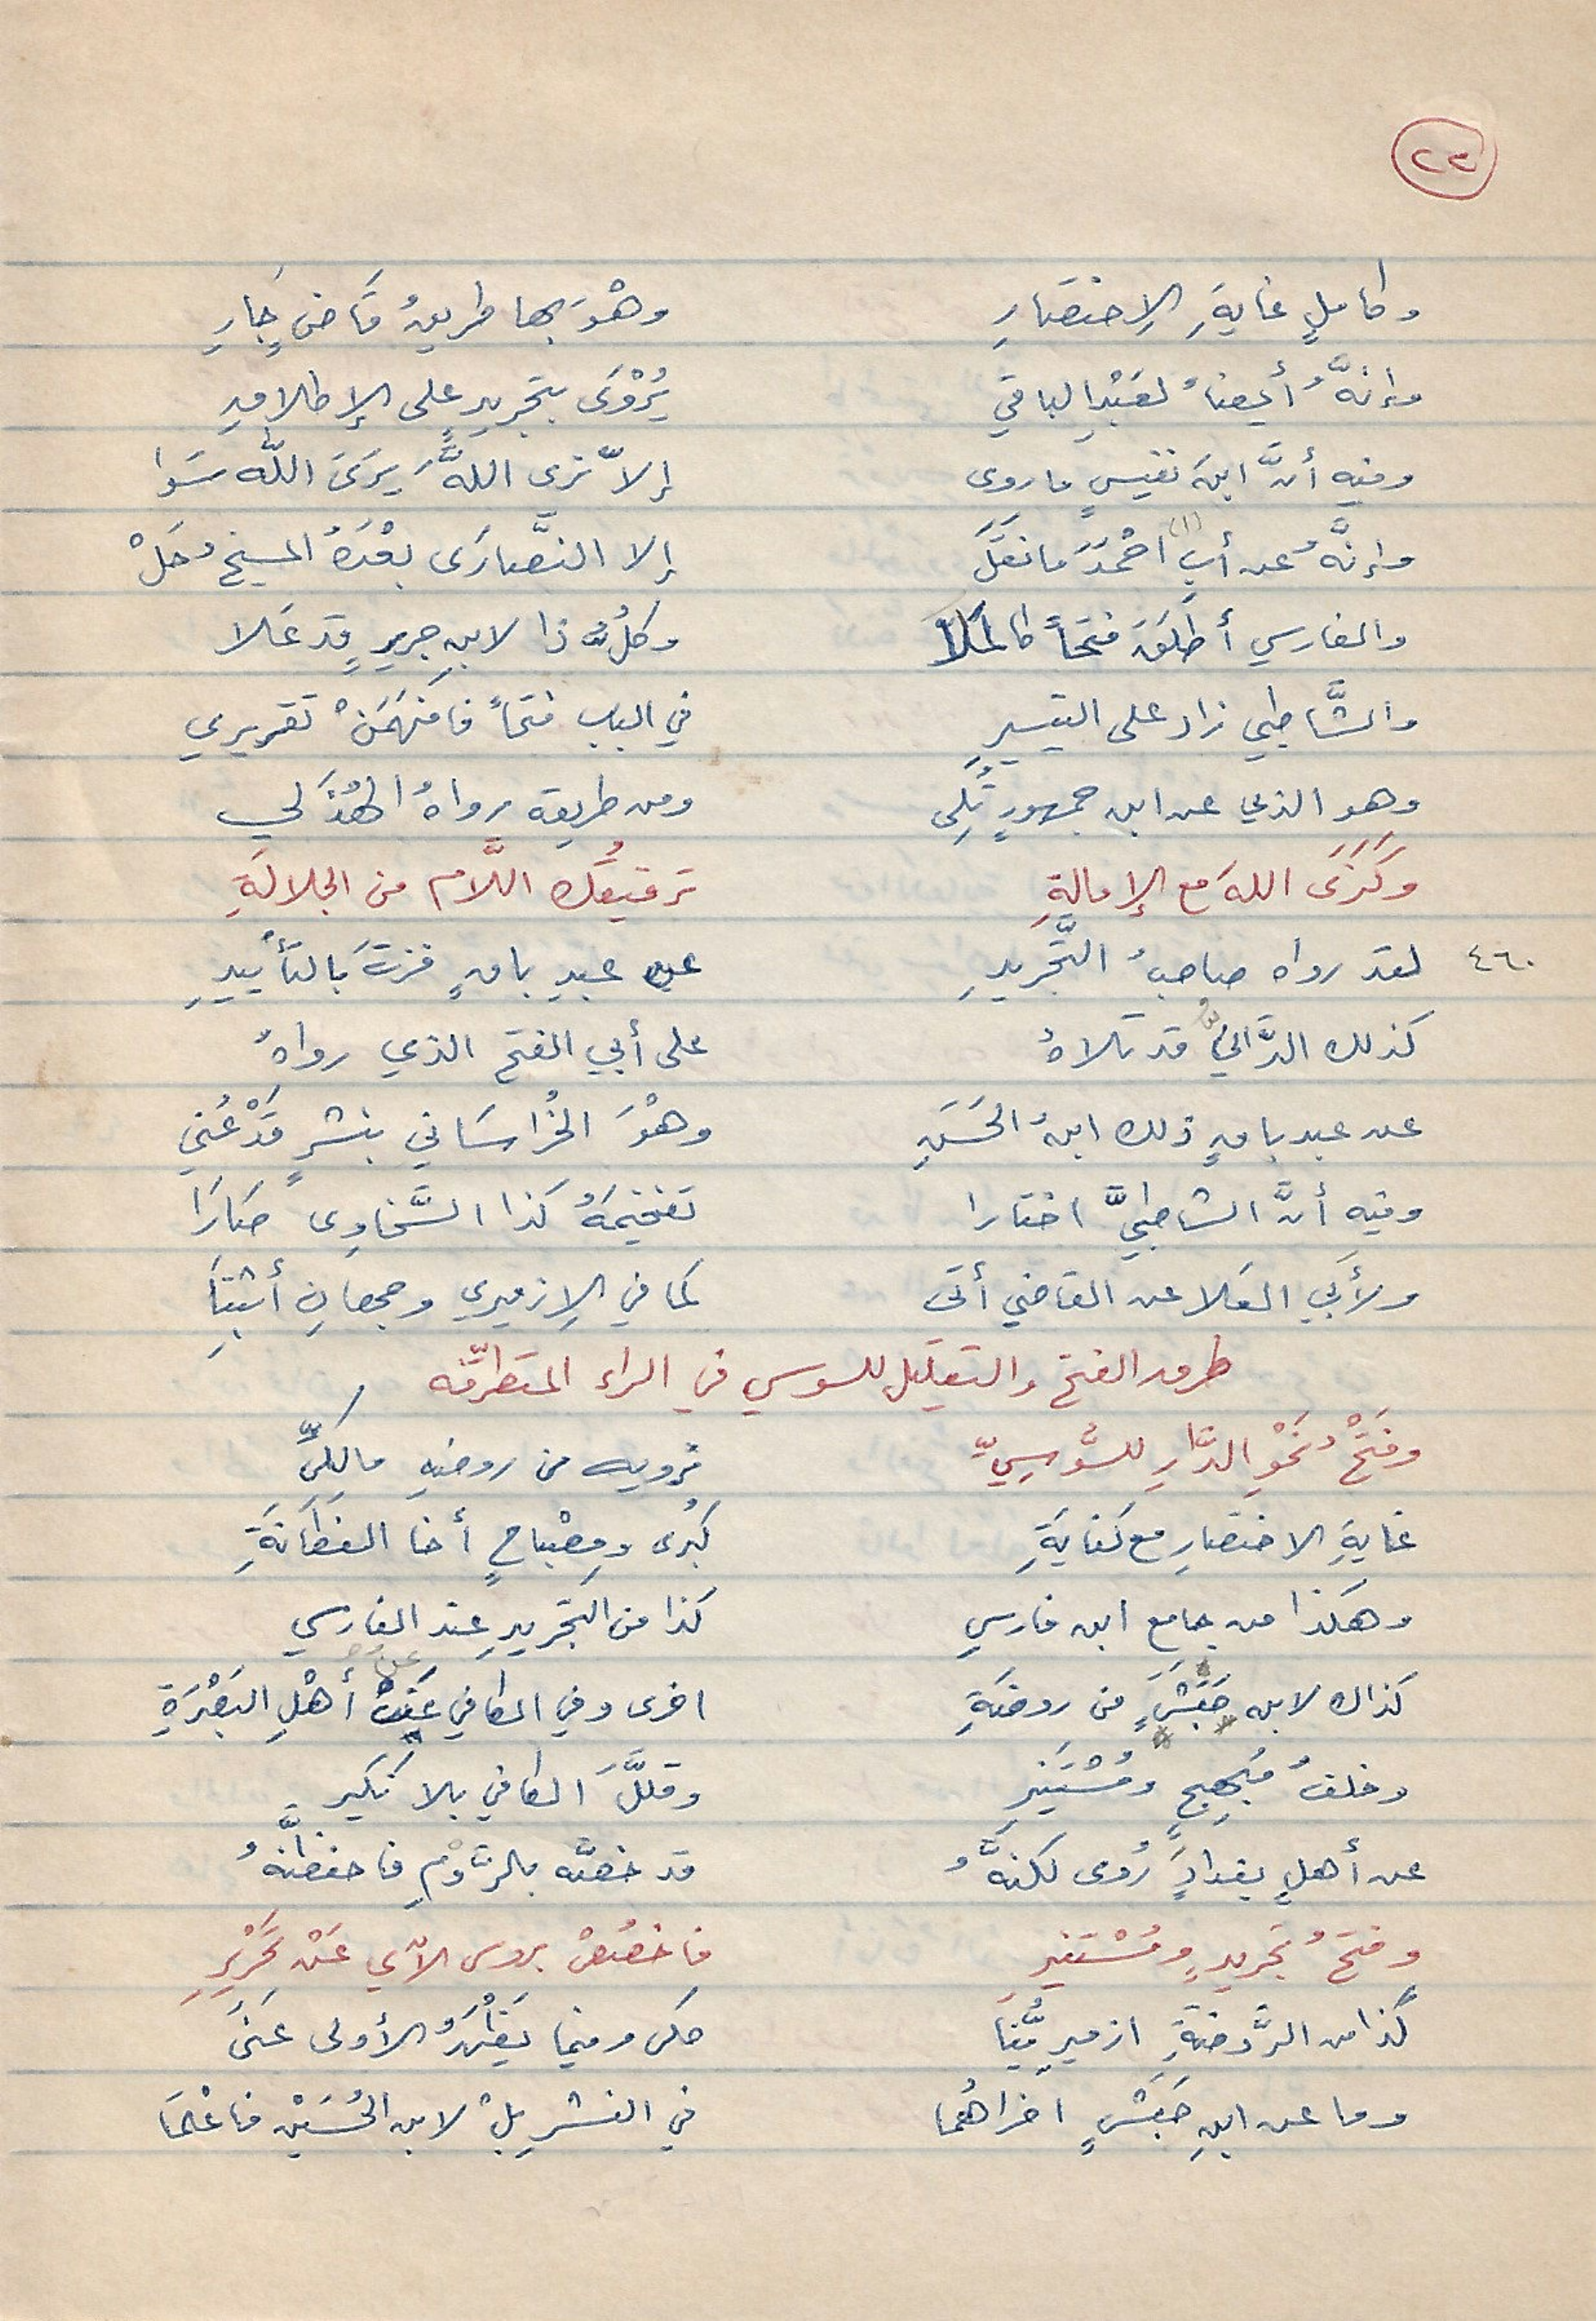 ٢٣
وكاملٍ غايةِ الِاختصَارِ وهْوَ بها طريقُ قَاضٍ جَارِ
وإنَّهُ أيضاً لعَبْدِ الباقي يُرْوَى بتجريدٍ على الإطلاقِ
وفيه أنَّ ابنَ نفيسٍ ما روى إلّا نرى اللهَ يَرَى اللّه سَوا
وإنَّهُ عن أبِ (١) احْمَدَ مَا نقَلَ إلا النَّصَارَى بعْدَهُ المسيحُ حَلْ
والفارسي أطلَقَ فتحاً كالملَا وكلُّ ذا لابنِ جريرٍ قد عَلا
والشَّاطبي زاد على التيسيرِ في الباب فتحاً فافهَمَنْ تقريري
وهو الذي عن ابن جمهورٍ تُلِى ومن طريقه رواهُ الهُذَلي
وكَنَرَى اللهَ مع الإمالةِ ترقيقُك اللَّام من الجلالَةِ
٤٦٠ لقد رواه صاحبُ التَّجريدِ عن عبدِ باقٍ فزتَ بالتأْييدِ
كذلك الدَّانيُّ قد تَلاهُ على أبي الفتح الذي رواهُ
عن عبد باقٍ ذلك ابنُ الحَسَنِ وهْوَ الخُراسَاني بنشرٍ قَدْ عُني
وفيه أنَّ الشاطبيَّ اختارا تفخيمَهُ كذا السَّخاوِى صَارَا
ولأبي العَلا عن القاضي أتى كما في الِازميري وجهانِ أثبتَا
طرق الفتح والتقليل للسوسي في الراء المتطرّفه
وفتْحُ نَحْوِ الدَّارِ للسُّوسِيِّ نرويه من روضةِ مالكيِّ
غايةِ الاختصَارِ مع كفايَةِ كُبرى ومِصْباحٍ أخا الفَطَانَةِ
وهكذا من جامع ابن فارسِ كذا من التجريدِ عند الفارسي
كذاك لابن حَبَشٍ من روضَةِ اخرى وفي الكافي عَنْ أهْلِ البَصْرَةِ
وخلفُ مُبهِجٍ ومُسْتَنيرِ وقلَّلَ الكافي بلا نَكيرِ
عن أهلِ بغدادٍ رُوى لكنَّهُ قد خصَّه بالرَّوْمِ فاحفظنَّهُ
وفتحُ تجريدٍ ومُسْتَنيرِ فاخصُصْ بروس الآي عَنْ تَحْرِيرِ
كَذا من الرَّوضةِ ازميرِيُّنَا حكى وفيما يَظْهَرُ الأولى عَنَى
وما عن ابنِ حَبَشٍ اخراهُما في النشرِ بلْ لابن الحُسَيْن فاعْلمَا